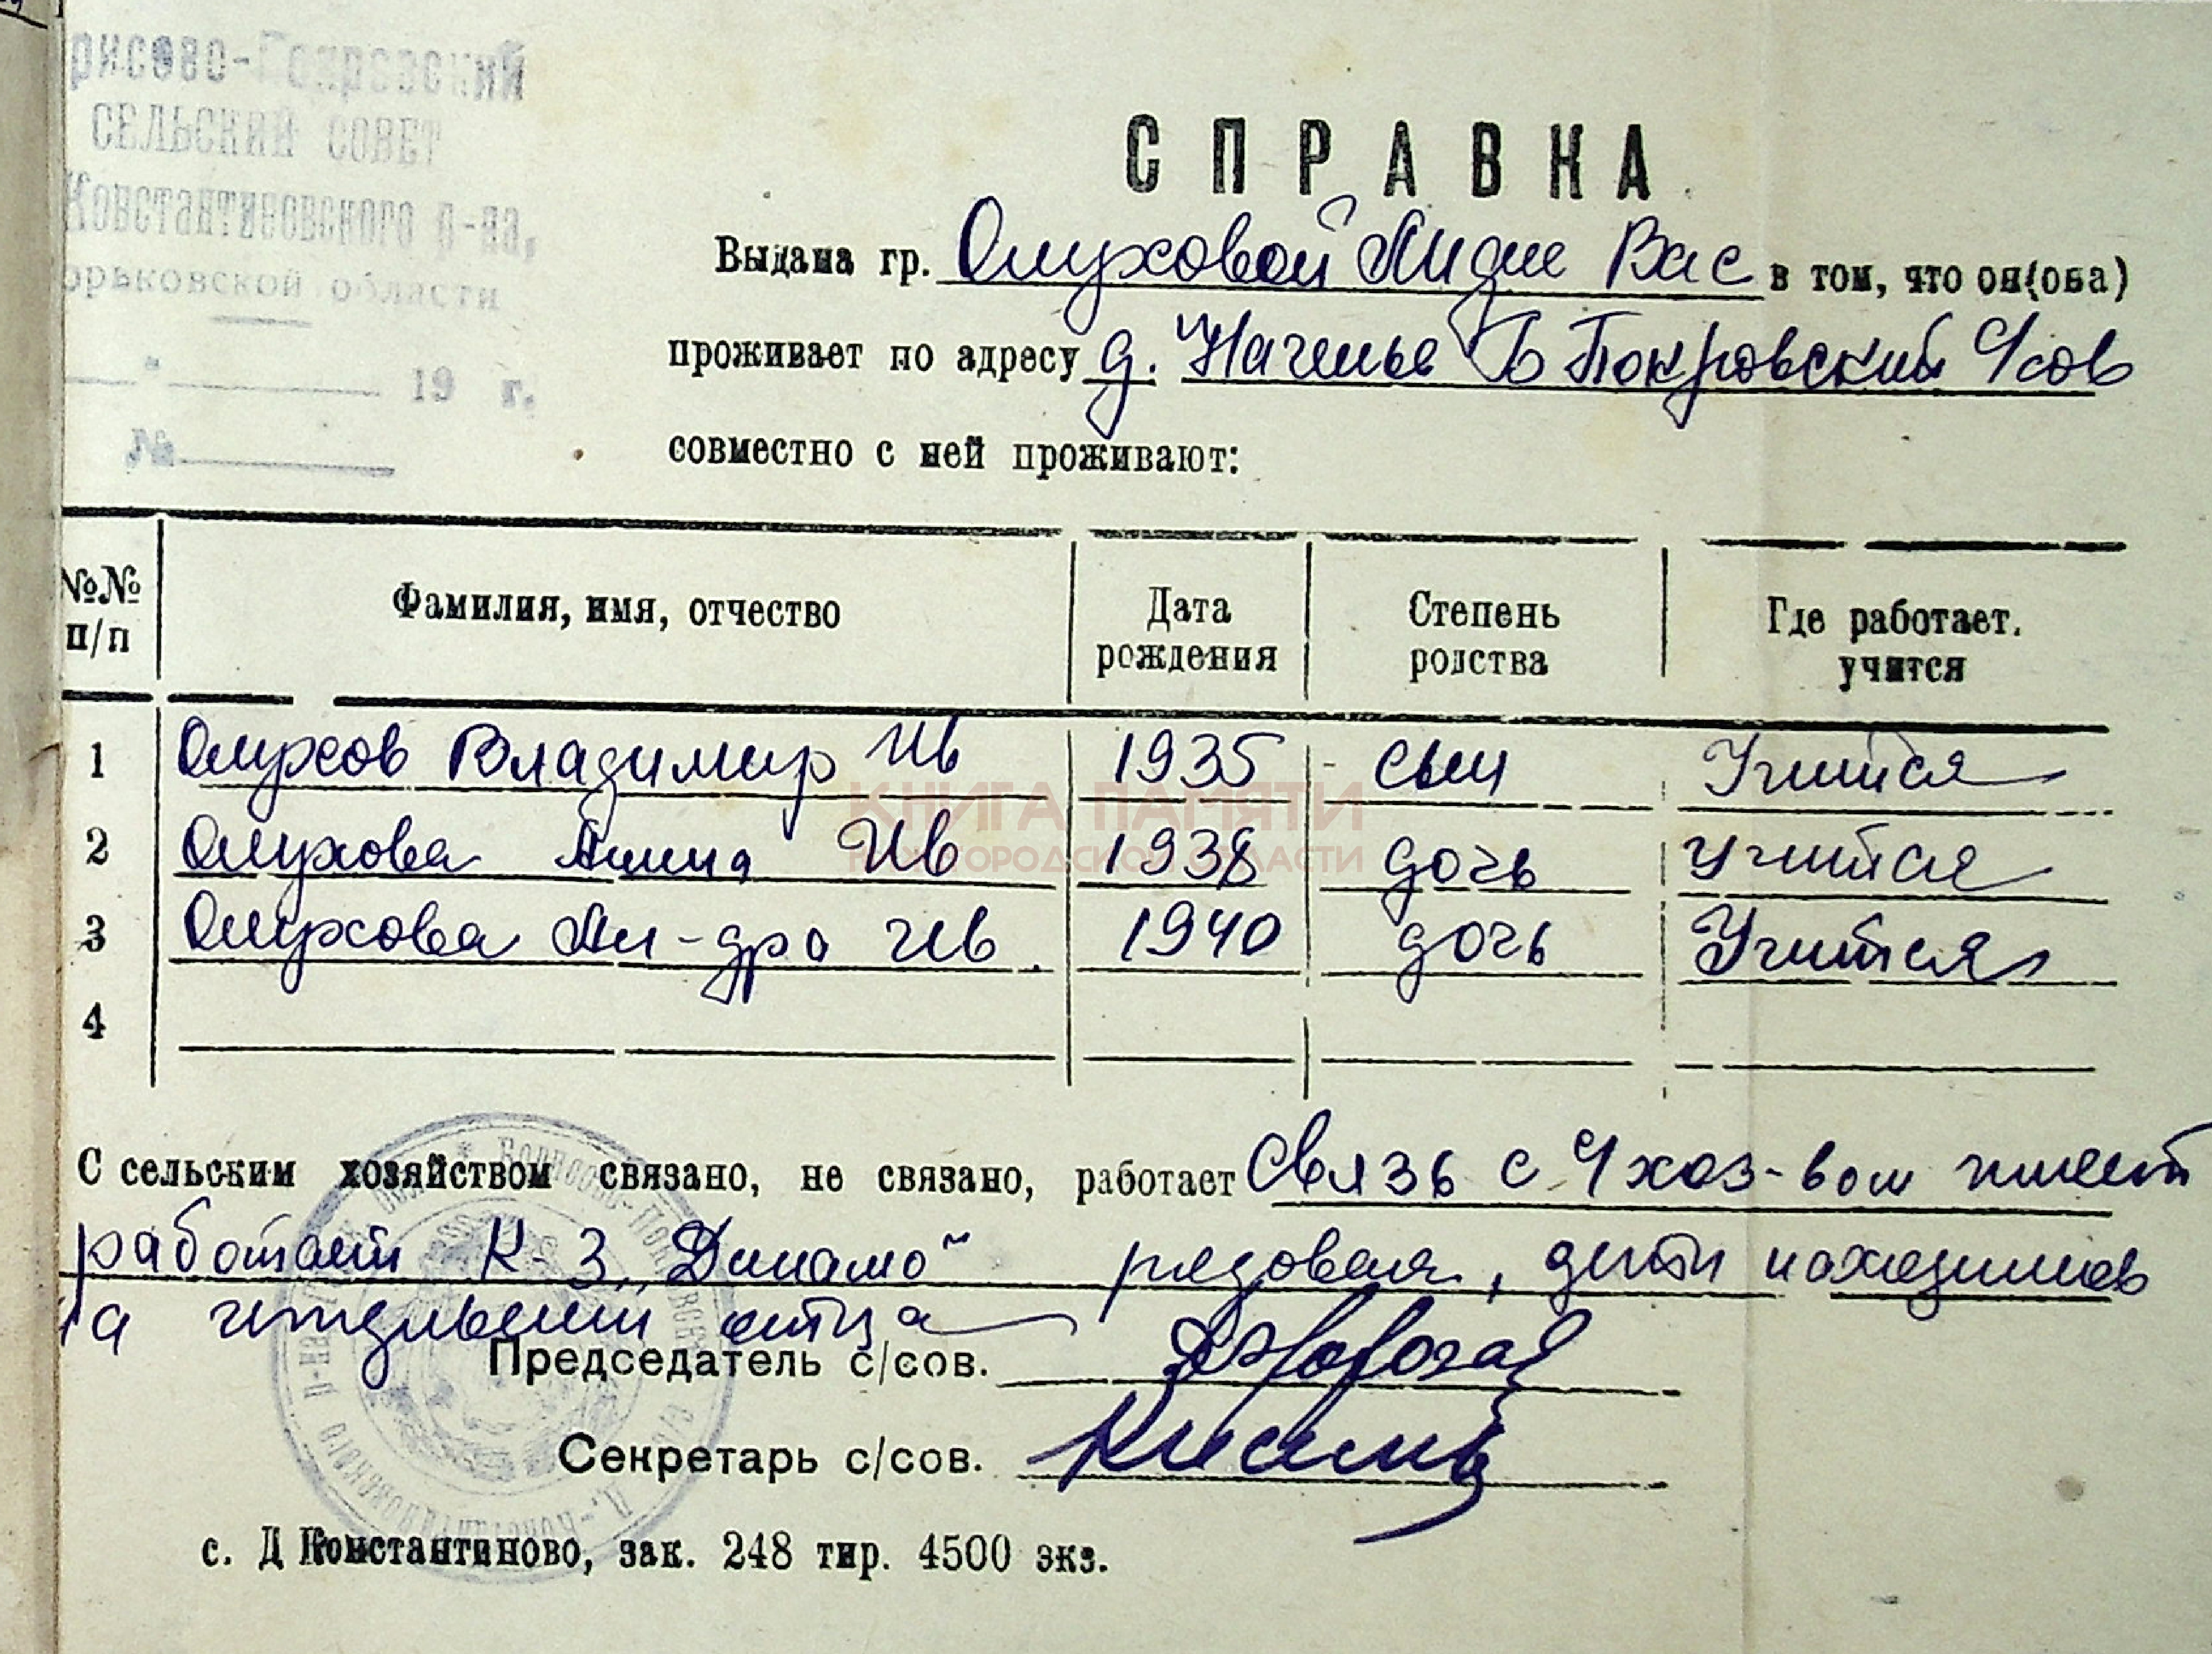 рисово-Покровский
СЕЛЬСКИЙ СОВЕТ
Константиновского р-на,
орьковской области
"
19 г.
№
СПРАВКА
Выдана гр. Олуховой Лидие Вас в том, что он(она)
проживает по адресу д. Наченье Б Покровский с/сов
совместно с ней проживают:
№№ п/п Фамилия, имя, отчество Дата рождения Степень родства Где работает, учится
1 Олухов Владимир Ив 1935 сын Учится
2 Олухова Ив 1938 дочь учится
3 Олухова Ив 1940 дочь Учится
4
КНИГА ПАМЯТИ
НИЖЕГОРОДСКОЙ ОБЛАСТИ
С сельским хозяйством связано, не связано, работает Связь с с/хоз-вом имеет
работает К-З „Динамо" рядовая, дети находились
на иждивении отца
Председатель с/сов.
Секретарь с/сов.
с. Д Константиново, зак. 248 тир. 4500 экз.